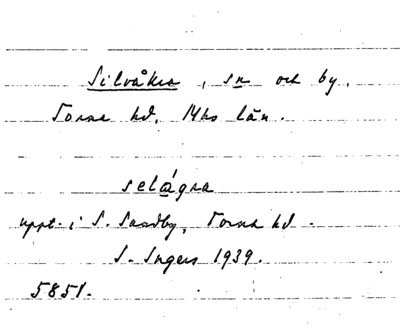 Silvåkra, sn och by.
Torna hd, Mhs län.
selågra
uppt. i S. Sandby, Torna hd.
S. Ingers 1939.
5851.